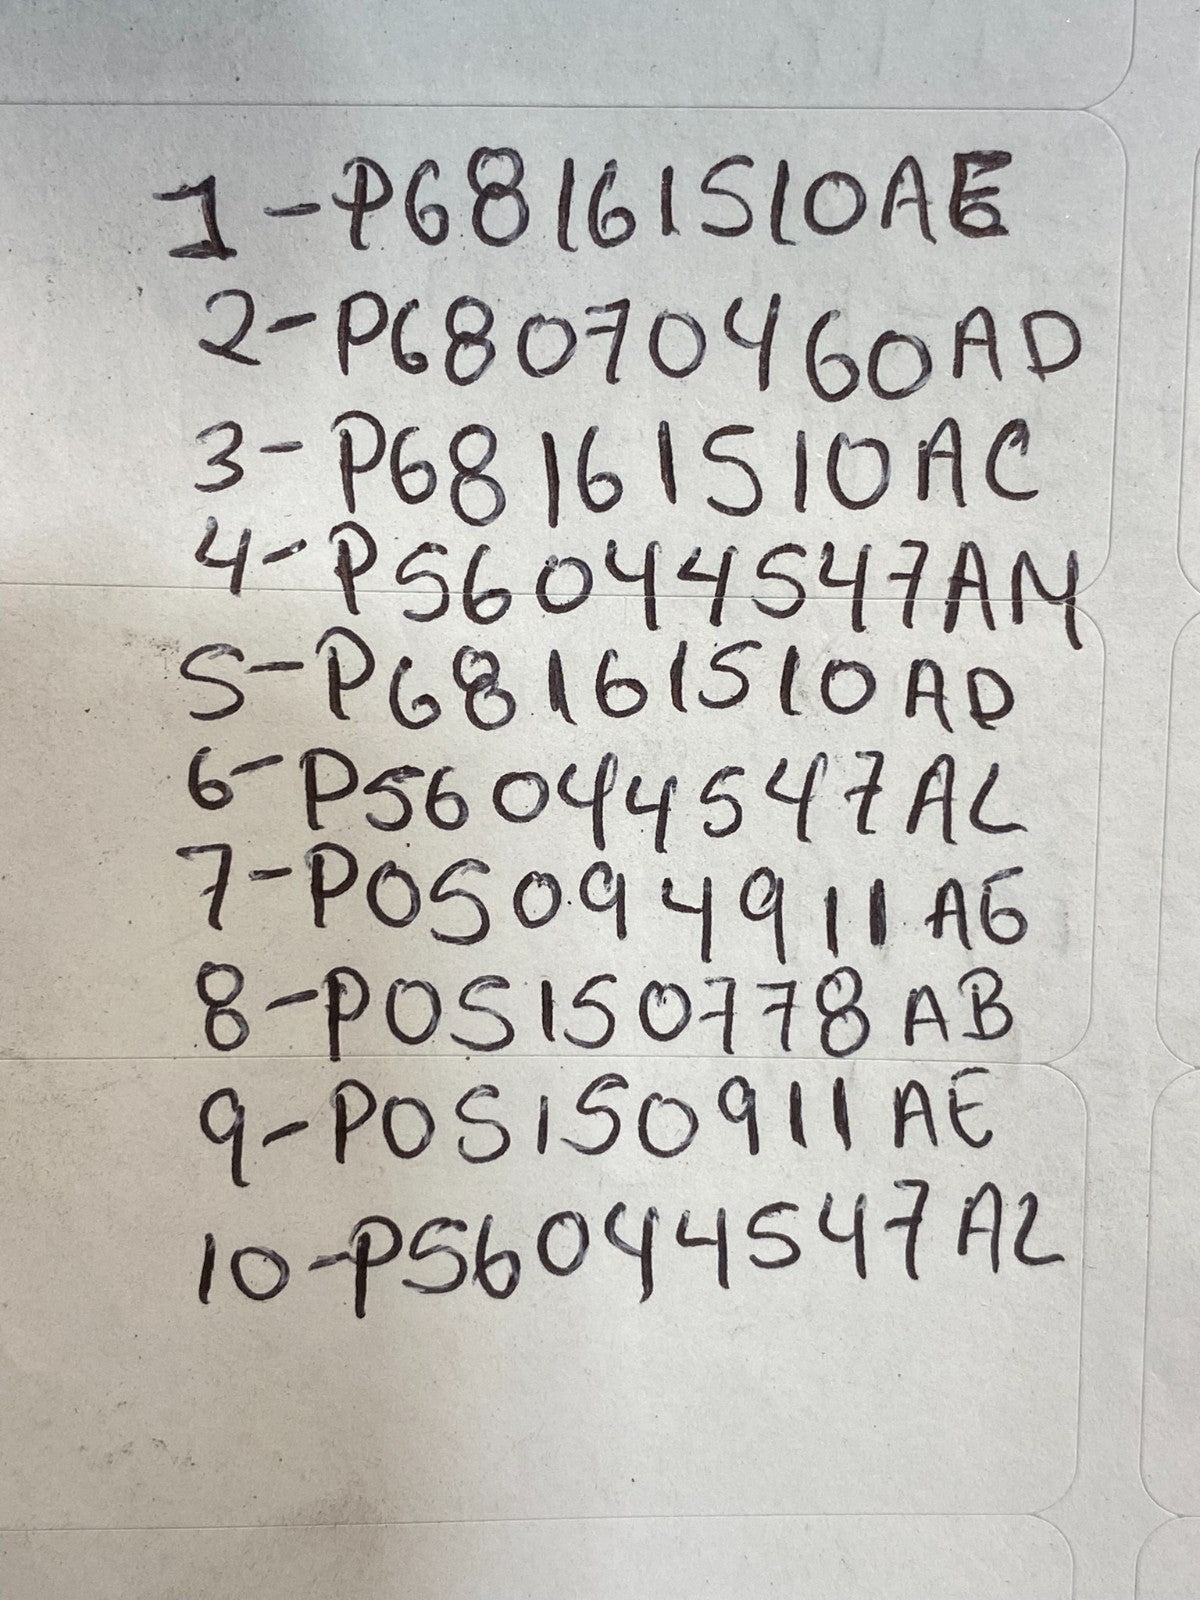 1-P68161510AE
2-P68070460AD
3-P68161510AC
4-P56044547AM
5-P68161510AD
6-P56044547AL
7-P05094911AG
8-P05150778AB
9-P05150911AE
10-P56044547AL